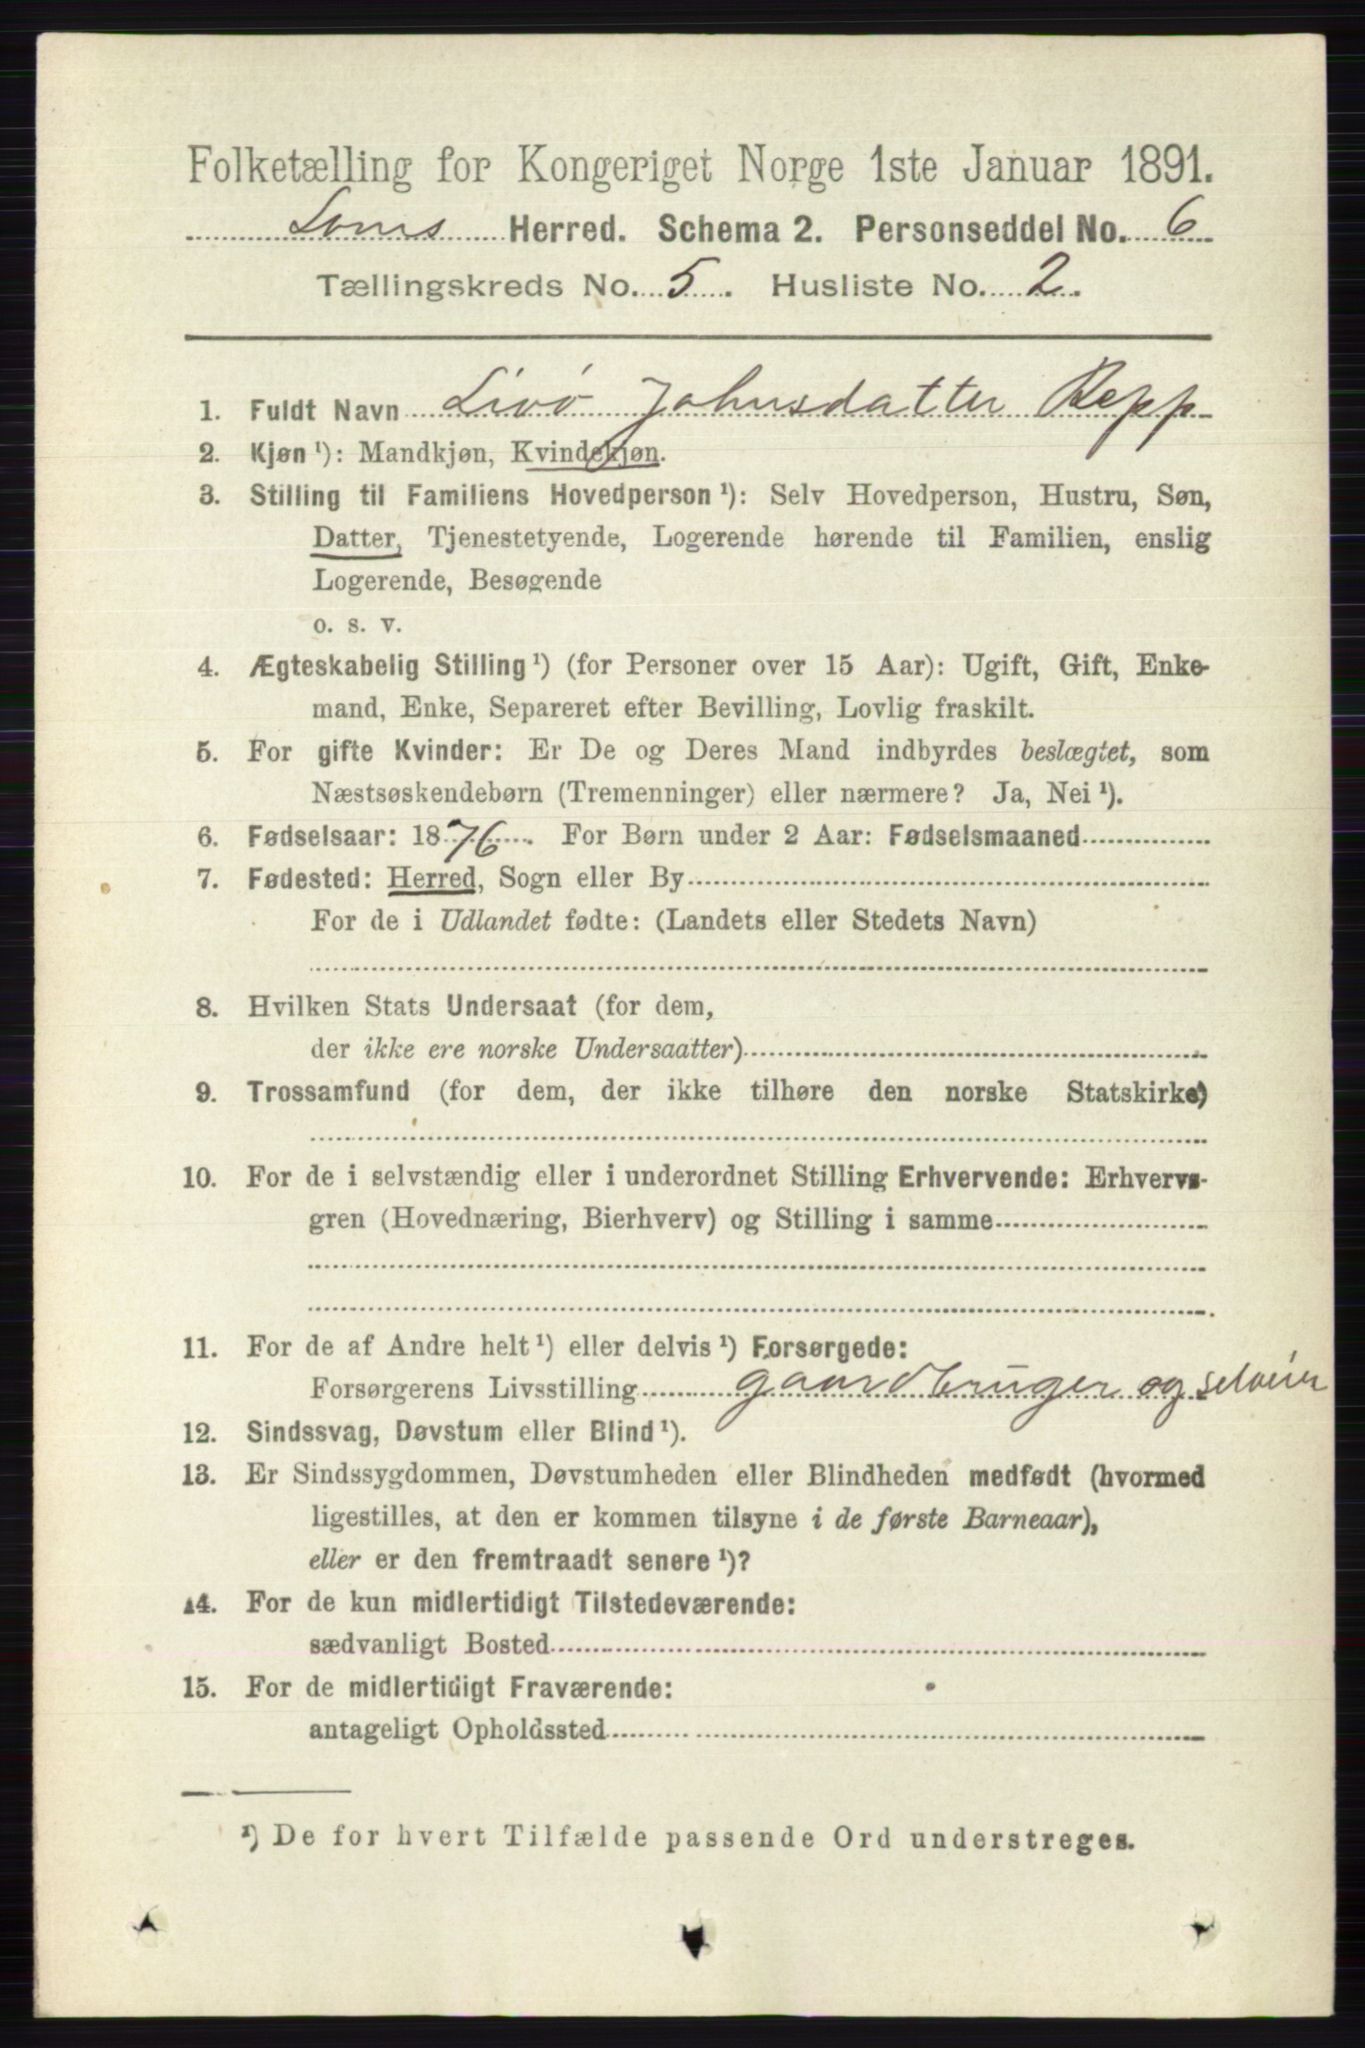 Folketælling for Kongeriget Norge 1ste Januar 1891.
Loms Herred. Schema 2. Personseddel No. 6
Tællingskreds No. 5. Husliste No. 2.
1. Fuldt Navn Livø Johnsdatter Repp
2. Kjøn ¹): Mandkjøn, Kvindekjøn.
3. Stilling til Familiens Hovedperson ¹): Selv Hovedperson, Hustru, Søn,
Datter, Tjenestetyende, Logerende hørende til Familien, enslig
Logerende, Besøgende
o. s. v.
4. Ægteskabelig Stilling ¹) (for Personer over 15 Aar): Ugift, Gift, Enke-
mand, Enke, Separeret efter Bevilling, Lovlig fraskilt.
5. For gifte Kvinder: Er De og Deres Mand indbyrdes beslægtet, som
Næstsøskendebørn (Tremenninger) eller nærmere? Ja, Nei ¹).
6. Fødselsaar: 1876. For Børn under 2 Aar: Fødselsmaaned
7. Fødested: Herred, Sogn eller By
For de i Udlandet fødte: (Landets eller Stedets Navn)
8. Hvilken Stats Undersaat (for dem,
der ikke ere norske Undersaatter)
9. Trossamfund (for dem, der ikke tilhøre den norske Statskirke)
10. For de i selvstændig eller i underordnet Stilling Erhvervende: Erhvervs-
gren (Hovednæring, Bierhverv) og Stilling i samme
11. For de af Andre helt ¹) eller delvis ¹) Forsørgede:
Forsørgerens Livsstilling gaardbruger og selveier
12. Sindssvag, Døvstum eller Blind ¹).
13. Er Sindssygdommen, Døvstumheden eller Blindheden medfødt (hvormed
ligestilles, at den er kommen tilsyne i de første Barneaar),
eller er den fremtraadt senere ¹)?
14. For de kun midlertidigt Tilstedeværende:
sædvanligt Bosted
15. For de midlertidigt Fraværende:
antageligt Opholdssted
¹) De for hvert Tilfælde passende Ord understreges.